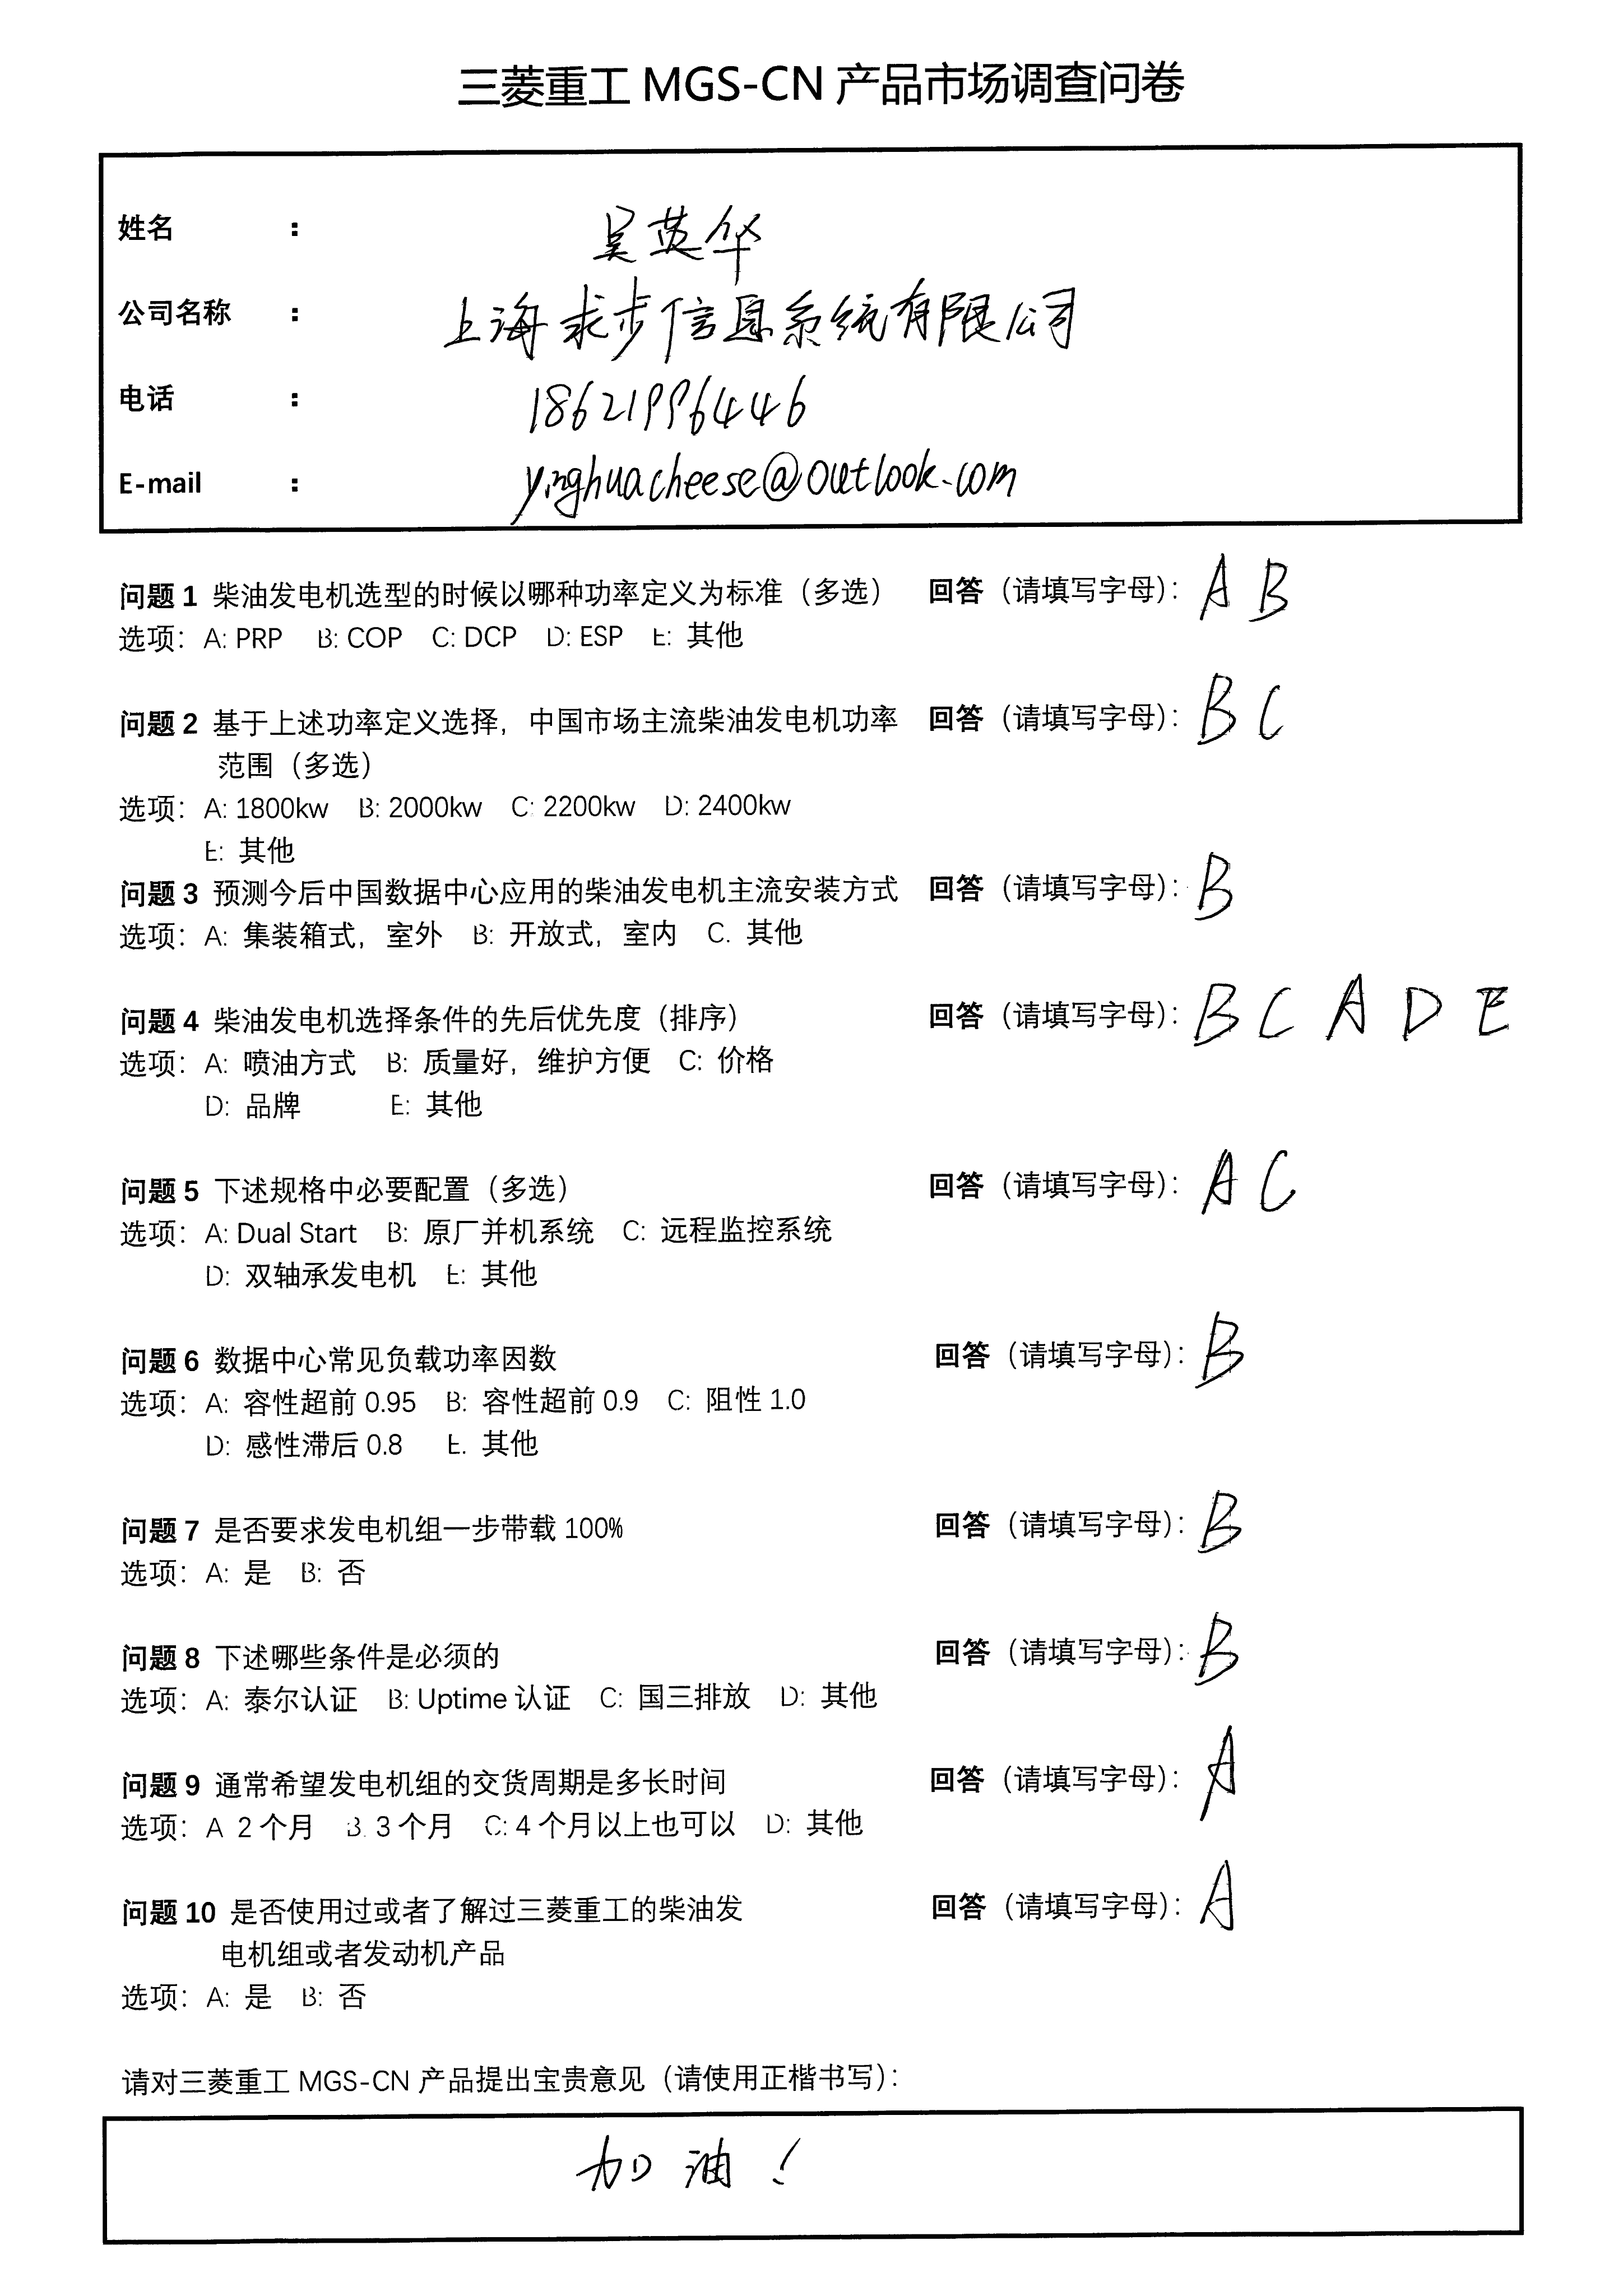 三菱重工 MGS-CN 产品市场调查问卷
姓名 : 吴英华
公司名称 : 上海求步信息系统有限公司
电话 : 18621996446
E-mail : yinghuacheese@outlook.com
问题 1 柴油发电机选型的时候以哪种功率定义为标准（多选） 回答（请填写字母）： A B
选项： A: PRP B: COP C: DCP D: ESP E: 其他
问题 2 基于上述功率定义选择，中国市场主流柴油发电机功率 回答（请填写字母）： B C
范围（多选）
选项： A: 1800kw B: 2000kw C: 2200kw D: 2400kw
E: 其他
问题 3 预测今后中国数据中心应用的柴油发电机主流安装方式 回答（请填写字母）： B
选项： A: 集装箱式，室外 B: 开放式，室内 C. 其他
问题 4 柴油发电机选择条件的先后优先度（排序） 回答（请填写字母）： B C A D E
选项： A: 喷油方式 B: 质量好，维护方便 C: 价格
D: 品牌 E: 其他
问题 5 下述规格中必要配置（多选） 回答（请填写字母）： A C
选项： A: Dual Start B: 原厂并机系统 C: 远程监控系统
D: 双轴承发电机 E: 其他
问题 6 数据中心常见负载功率因数 回答（请填写字母）： B
选项： A: 容性超前 0.95 B: 容性超前 0.9 C: 阻性 1.0
D: 感性滞后 0.8 E. 其他
问题 7 是否要求发电机组一步带载 100% 回答（请填写字母）： B
选项： A: 是 B: 否
问题 8 下述哪些条件是必须的 回答（请填写字母）： B
选项： A: 泰尔认证 B: Uptime 认证 C: 国三排放 D: 其他
问题 9 通常希望发电机组的交货周期是多长时间 回答（请填写字母）： A
选项： A 2 个月 B. 3 个月 C: 4 个月以上也可以 D: 其他
问题 10 是否使用过或者了解过三菱重工的柴油发 回答（请填写字母）： A
电机组或者发动机产品
选项： A: 是 B: 否
请对三菱重工 MGS-CN 产品提出宝贵意见（请使用正楷书写）：
加油！